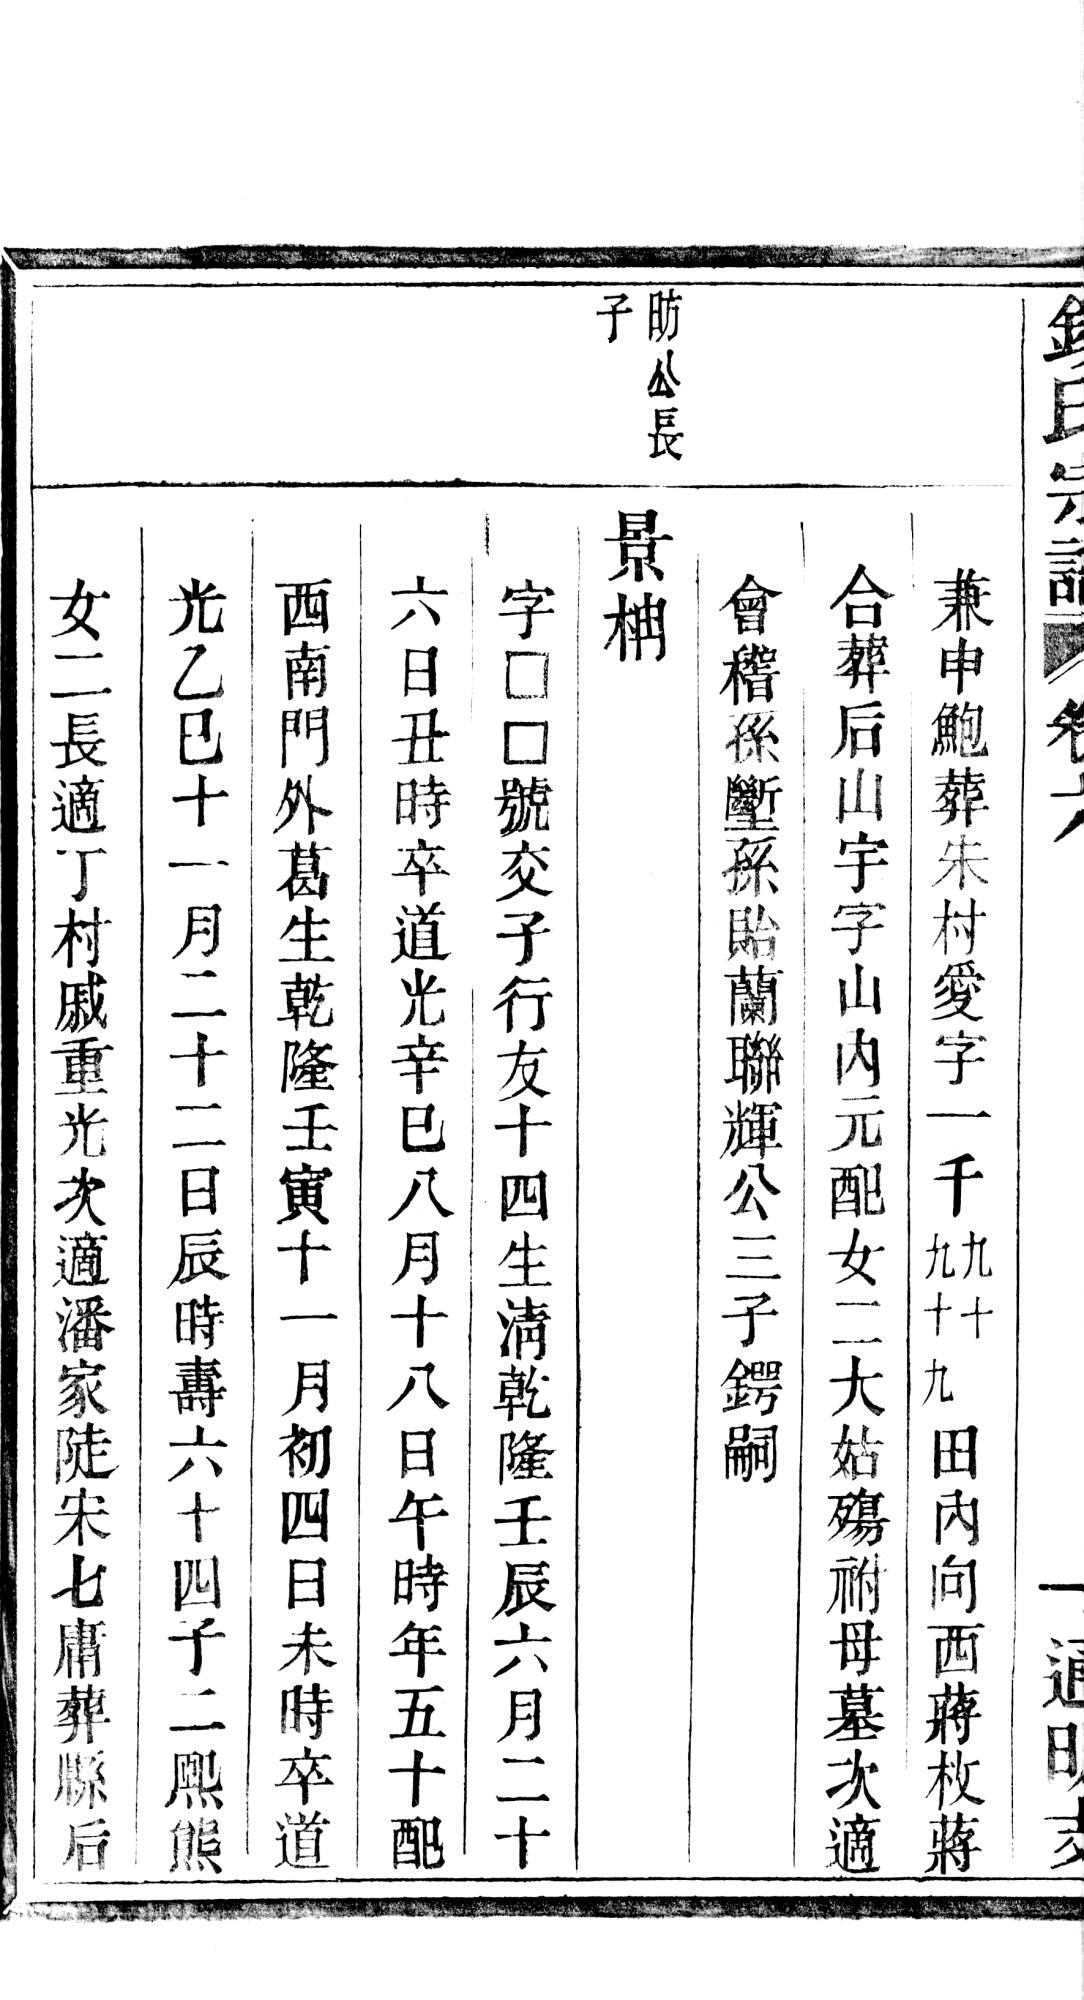 氏宗譜 卷六 一 通明支
兼申鮑葬朱村愛字一千九十九十九田內向西蔣枚蔣
合葬后山宇字山內元配女二大姑殤祔母墓次適
會稽孫壍孫貽蘭聯輝公三子鍔嗣
昉公長
子
景柟
字□□號交子行友十四生清乾隆壬辰六月二十
六日丑時卒道光辛巳八月十八日午時年五十配
西南門外葛生乾隆壬寅十一月初四日未時卒道
光乙巳十一月二十二日辰時壽六十四子二熙熊
女二長適丁村戚重光次適潘家陡宋七庸葬縣后